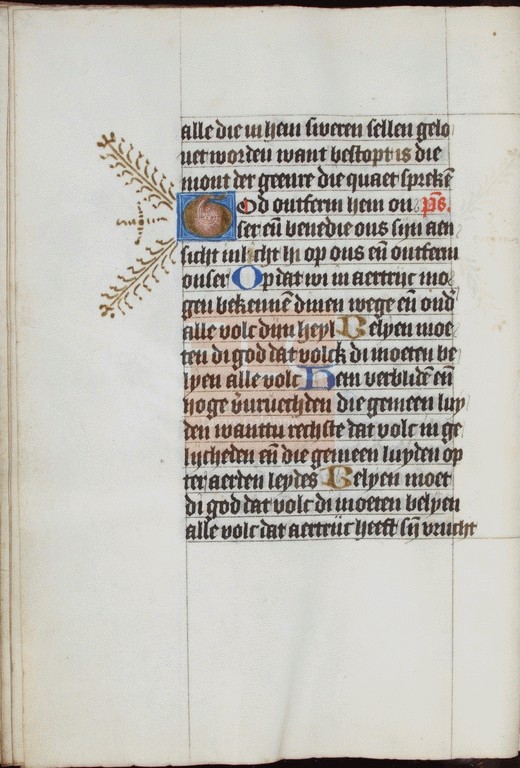 alle die in hem sweren sellen gelo
uet worden want bestopt is die
mont der geenre die quaet sprekē
God ontferm hem on ps̄.
ser eñ benedie ons sijn aen
sicht inlicht hi op ons eñ ontferm
onser Op dat wi in aertrijc mo
gen bekennē dinen wege eñ ond
alle volc dijn heyl Belyen moe
ten di god dat volck di moeten be
lyen alle volc Hem verblidē eñ
hoge v̄uruechden die gemeen luy
den wanttu rechste dat volc in ge
lijcheden eñ die gemeen luyden op
ter aerden leydes Belyen moet
di god dat volc di moeten belyen
alle volc dat aertrijc heeft sij vrucht